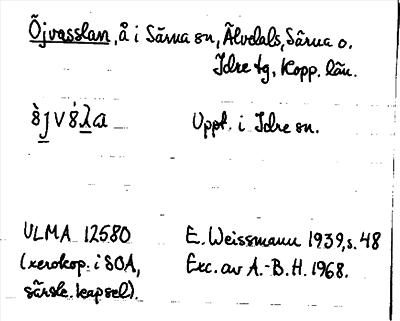 Öjvasslan, å i Särna sn, Älvdals, Särna o.
Idre tg, Kopp. län.
Uppt. i Idre sn.
ULMA 12580
(xerokop. i SOA,
särsk. kapsel).
E. Weissmann 1939, s. 48
Exc. av A.-B. H. 1968.